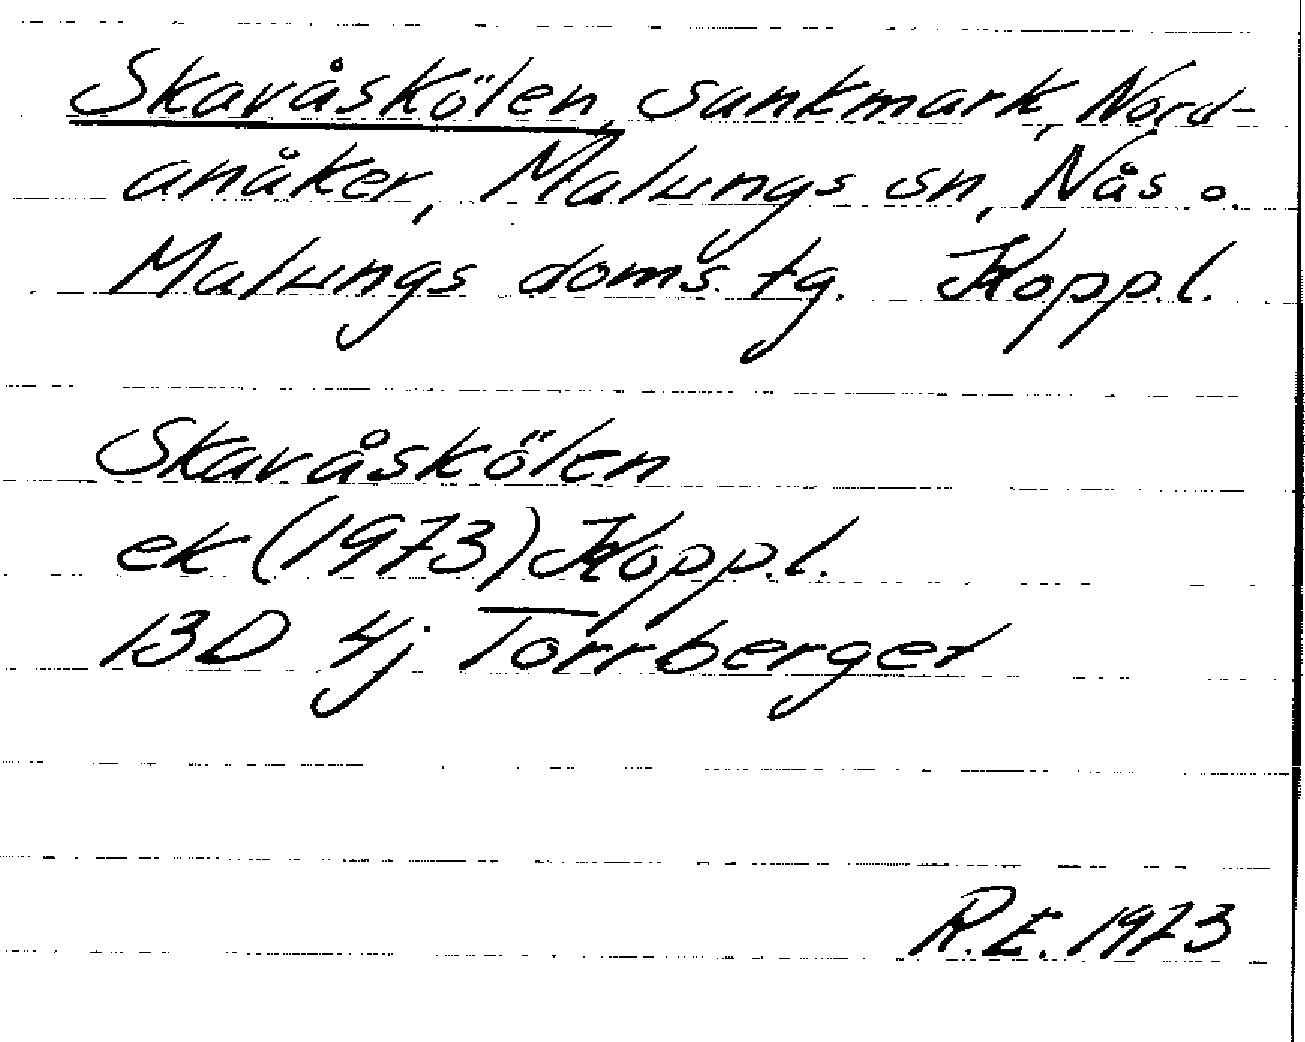 Skavåskölen, sankmark, Nord-
anåker, Malungs sn, Nås o.
Malungs doms. tg. Kopp.l.
Skavåskölen
ek (1973) Kopp.l.
13D 4j Torrberget
R.E. 1973